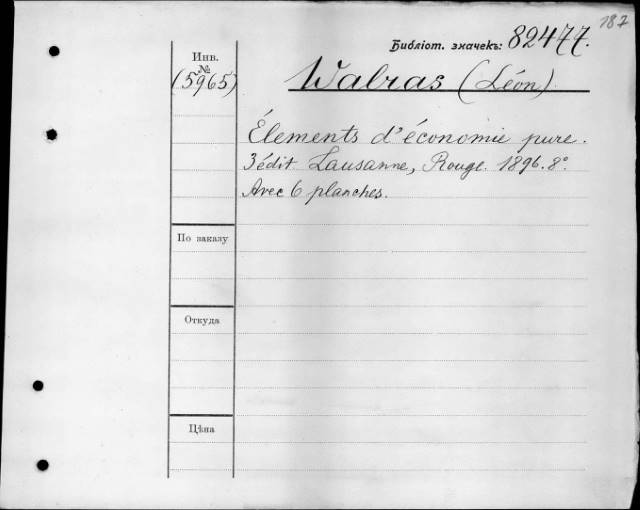 187
Библіот. значекъ: 82477.
Инв. №
(5965)
Walras (Léon)
Élements d'économie pure.
3 édit Lausanne, Rouge. 1896. 8°.
Avec 6 planches.
По заказу
Откуда
Цѣна